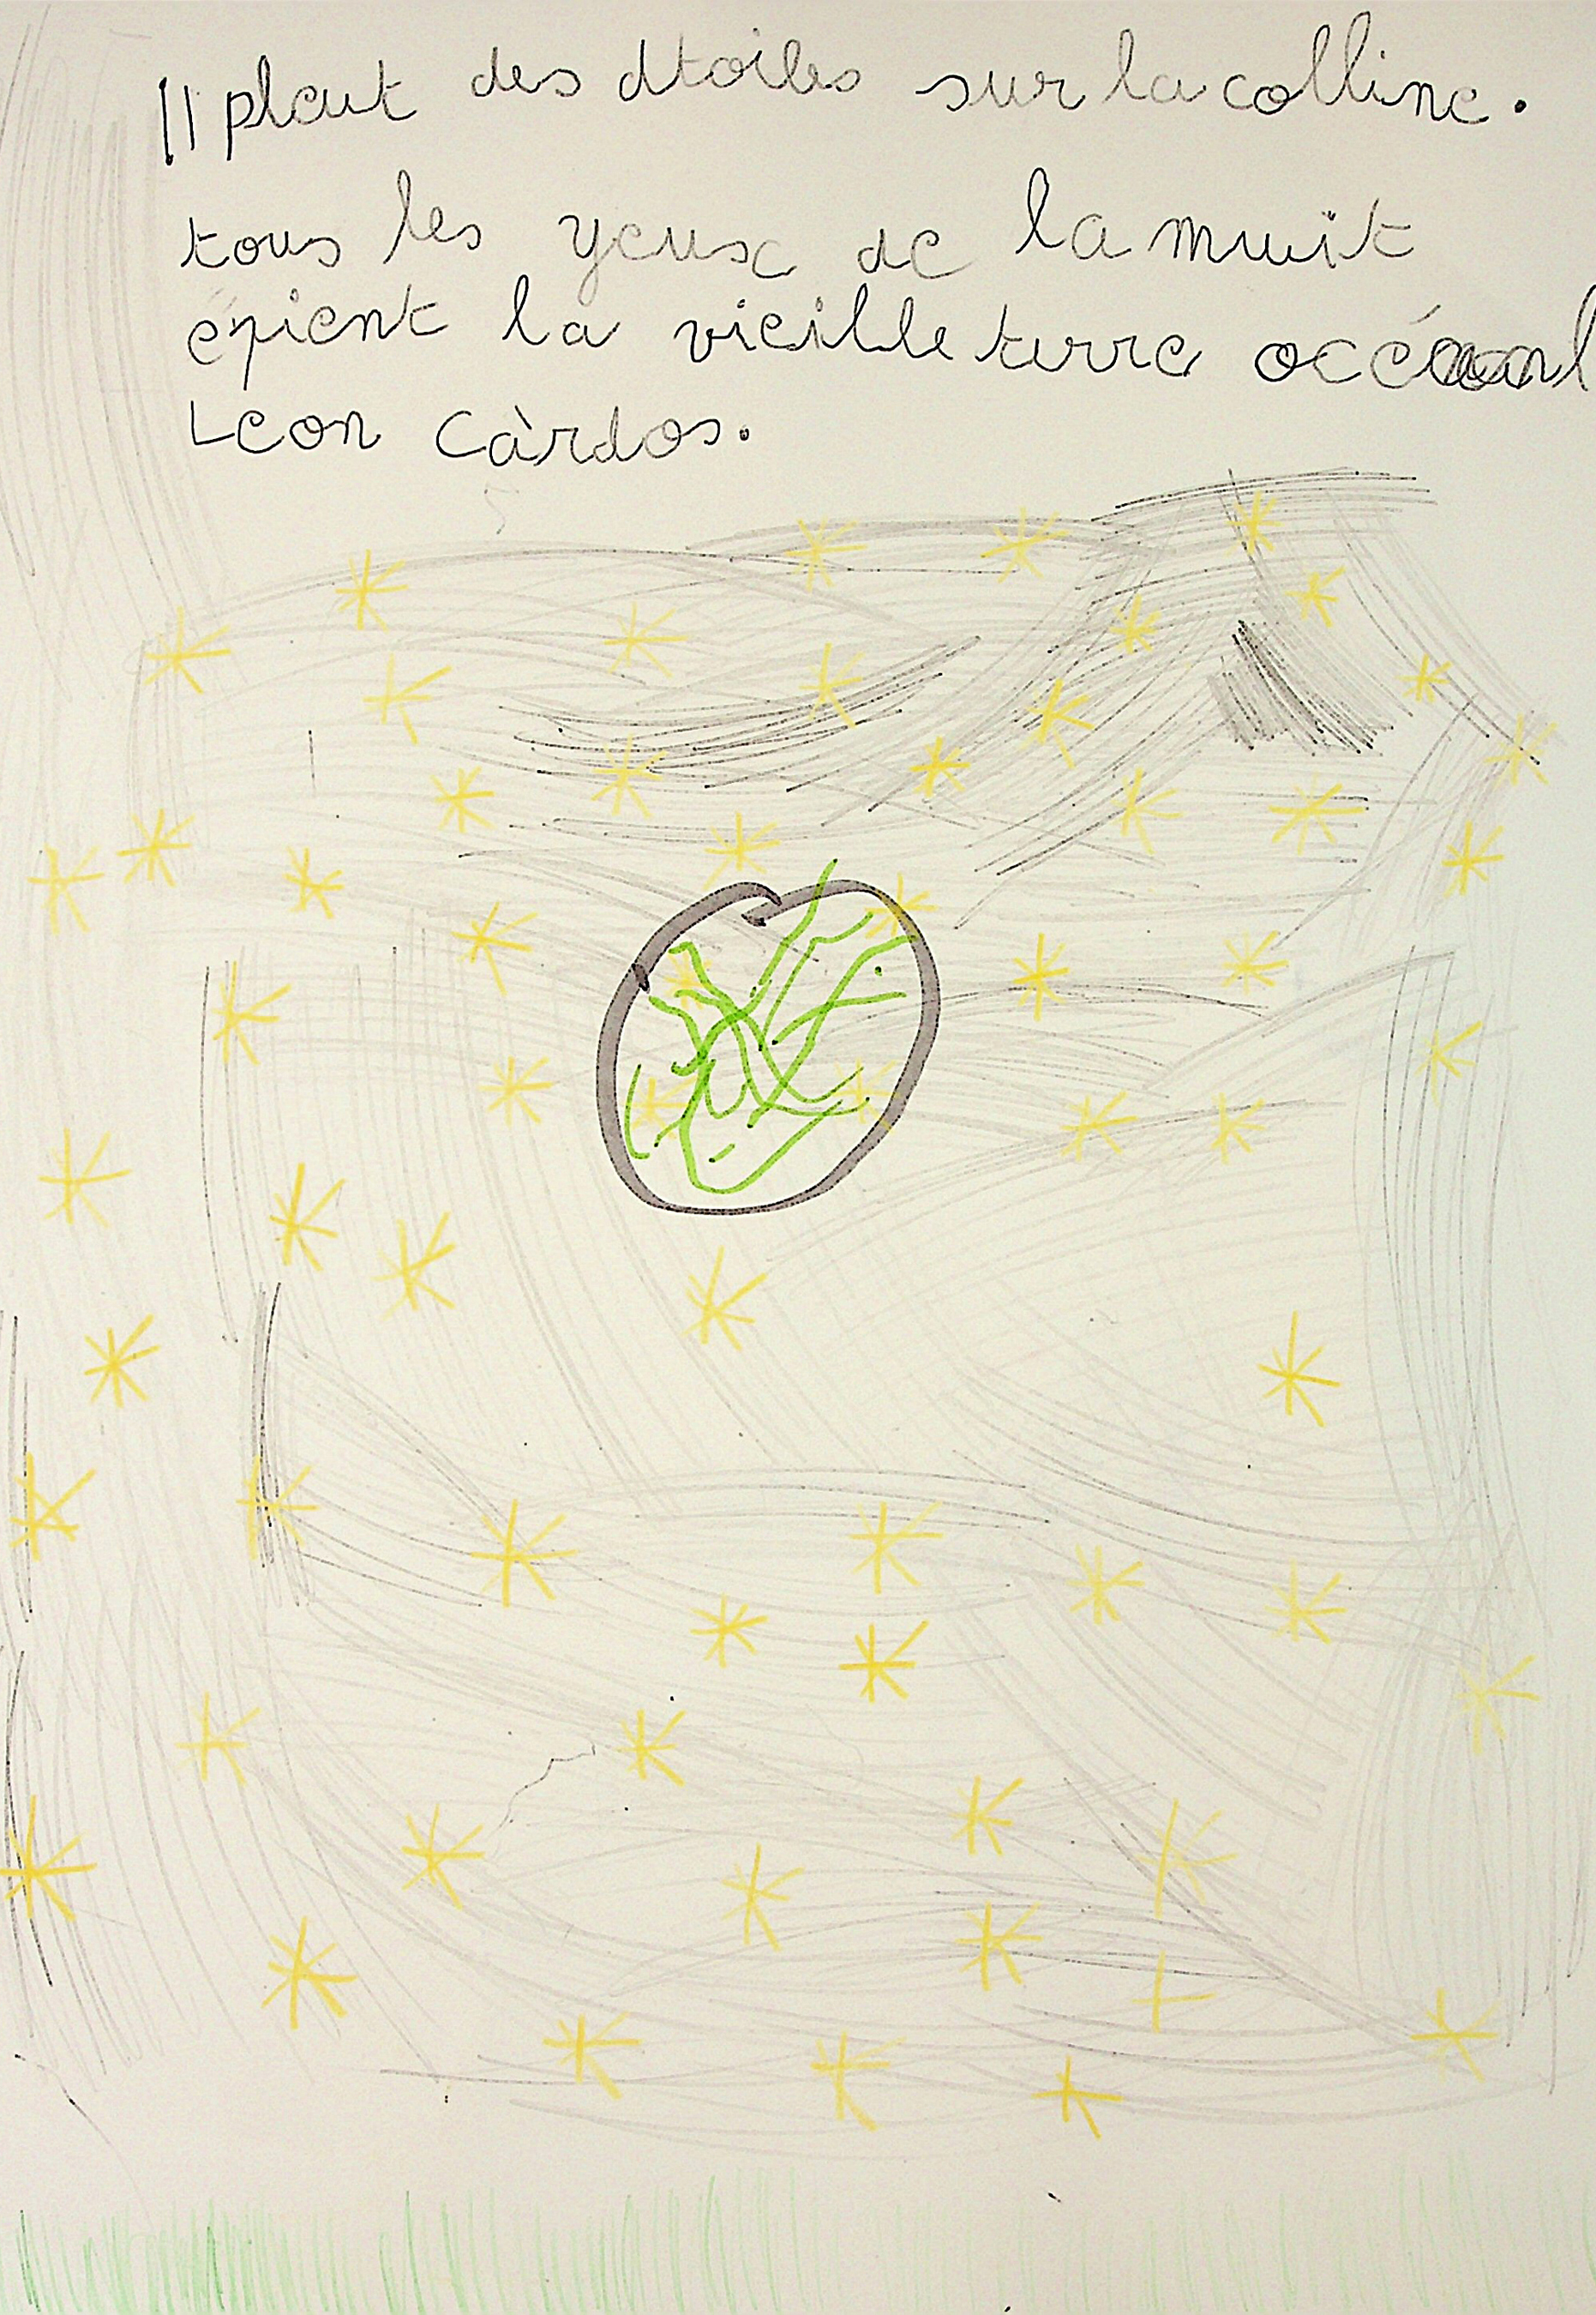 Il pleut des étoiles sur la colline.
tous les yeux de la nuit
épient la vieille terre océanl
Leon Càrdos.